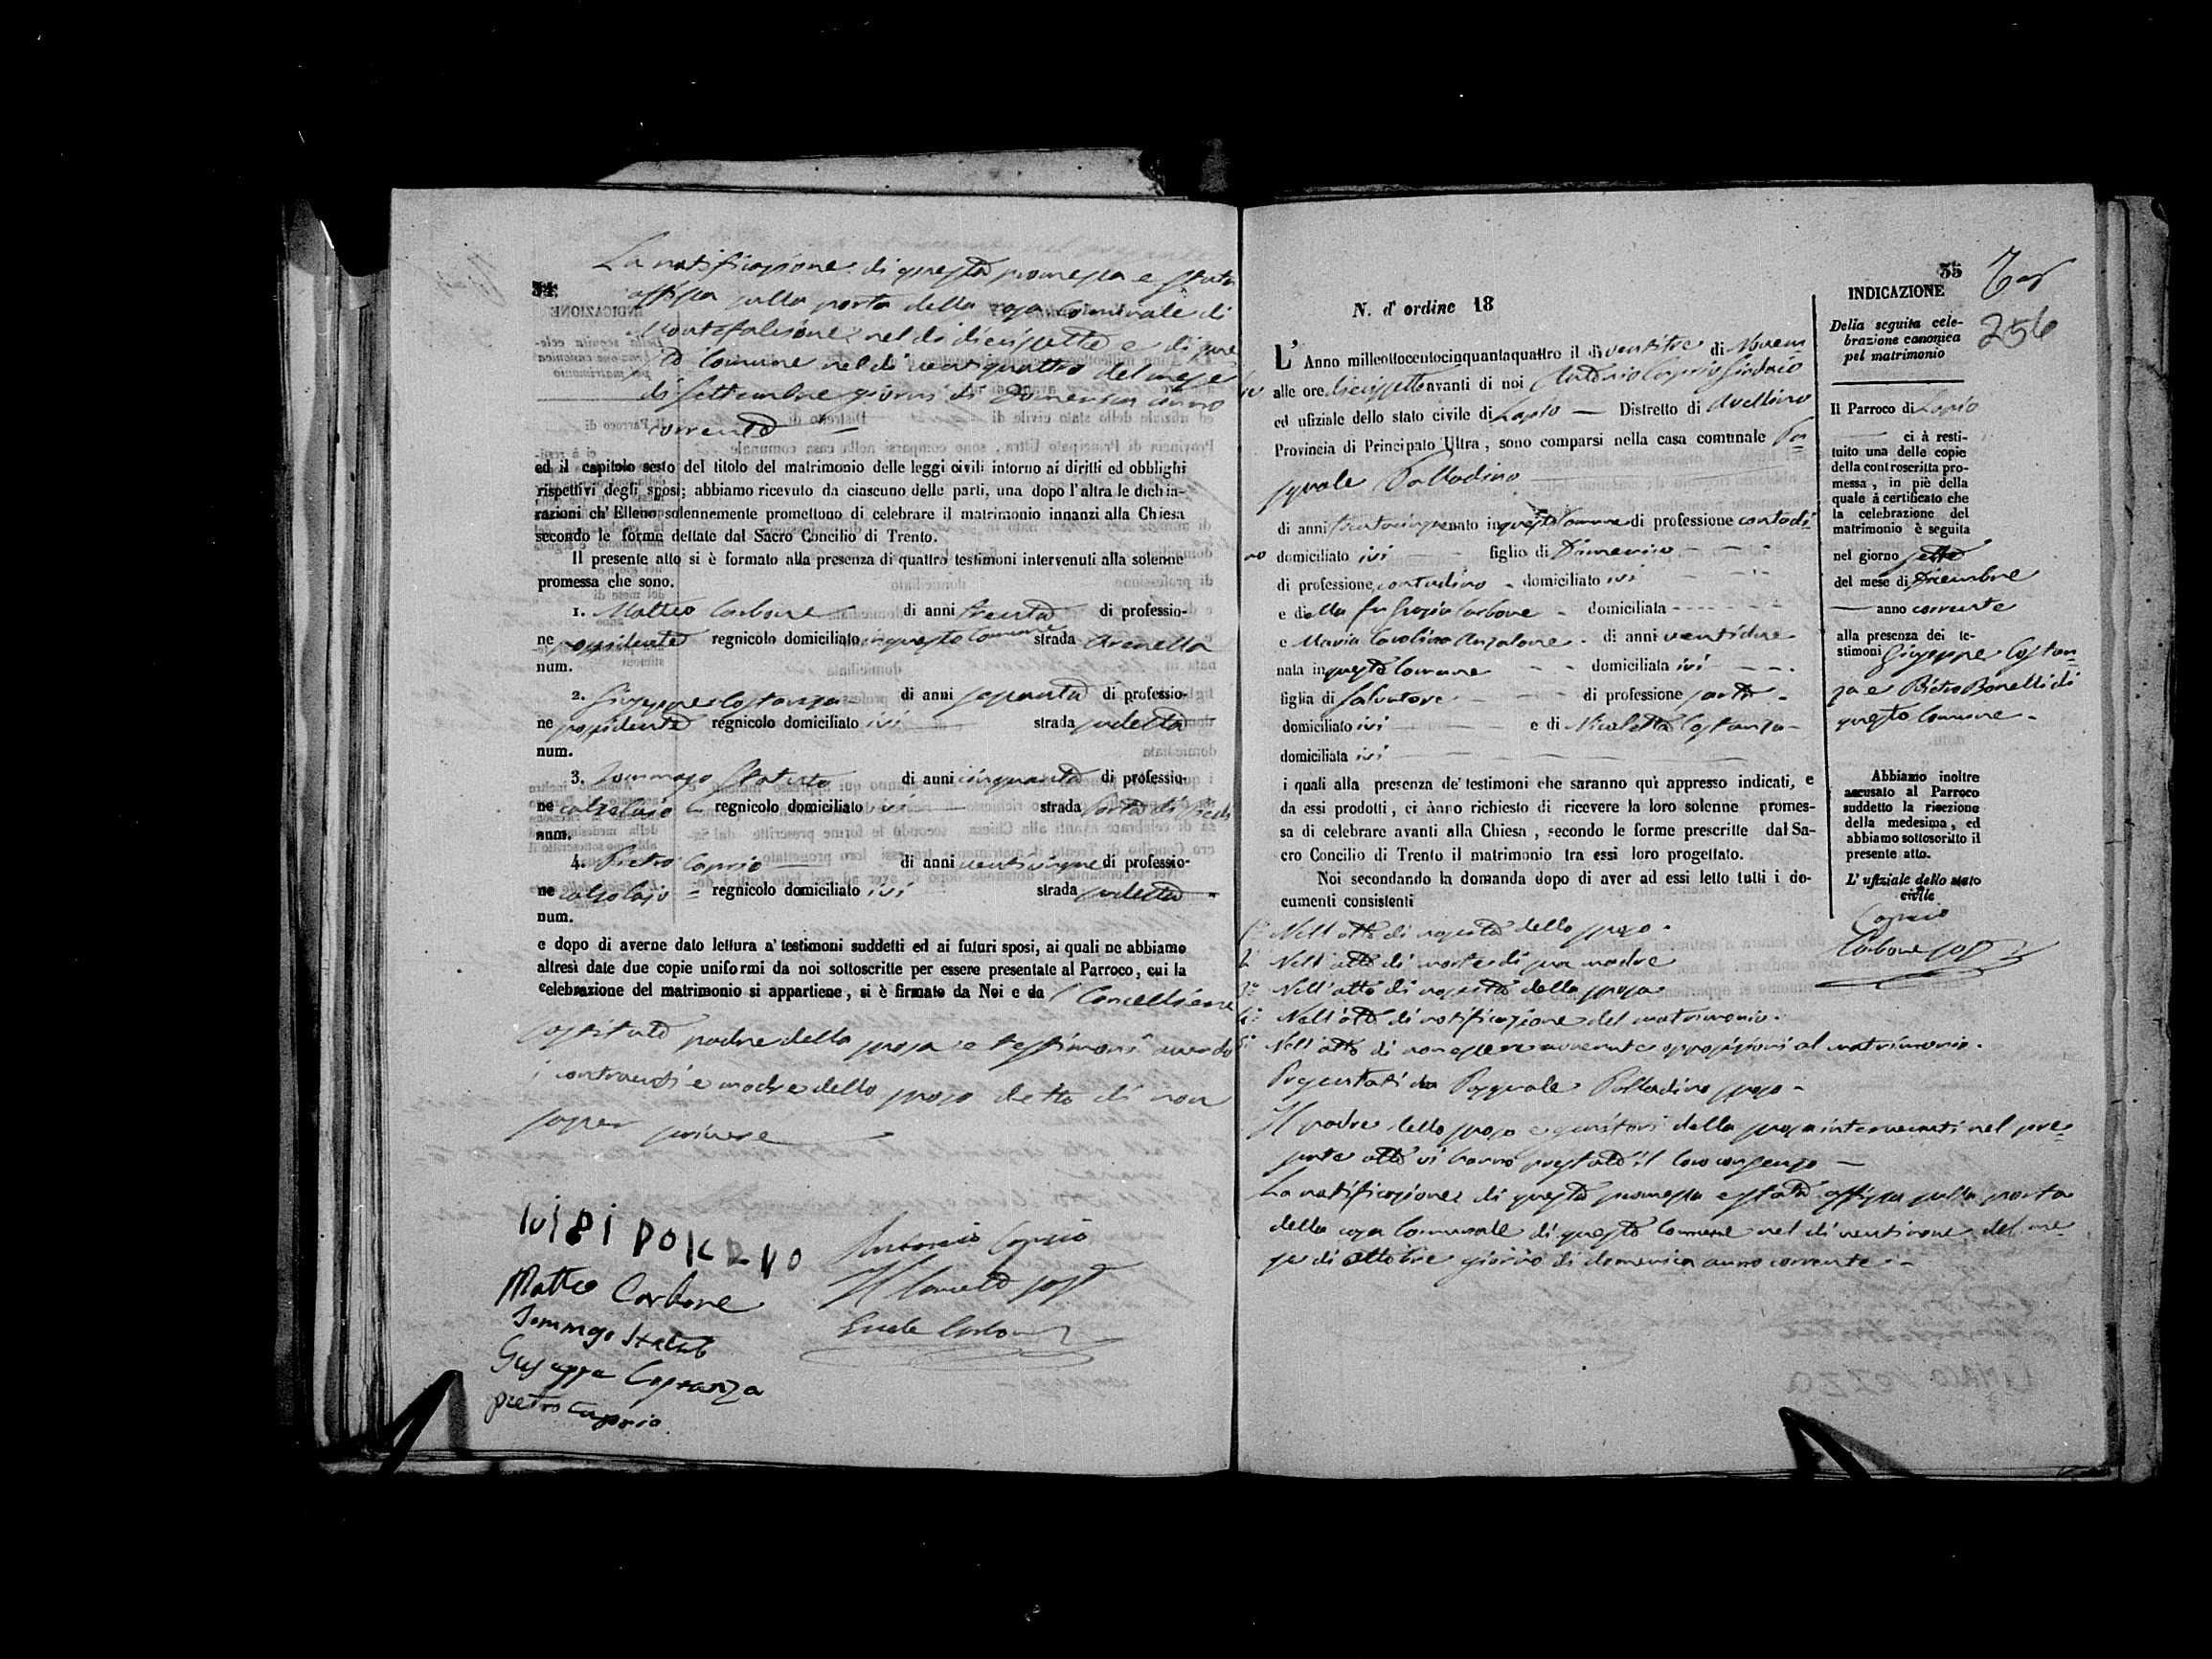 34
La notificazione di questa promessa è stata
affissa sulla porta della casa Comunale di
Montefalcione nel dì diciassette e di que
sto Comune nel dì ventiquattro del mese
di Settembre giorni di Domenica anno
corrente
ed il capitolo sesto del titolo del matrimonio delle leggi civili intorno ai diritti ed obblighi
rispettivi degli sposi; abbiamo ricevuto da ciascuno delle parti, una dopo l'altra le dichia-
razioni ch' Elleno solennemente promettono di celebrare il matrimonio innanzi alla Chiesa
secondo le forme dettate dal Sacro Concilio di Trento.
Il presente atto si è formato alla presenza di quattro testimoni intervenuti alla solenne
promessa che sono.
1. Matteo Carbone di anni trenta di professio-
ne possidente regnicolo domiciliato in questo Comune strada Arenella
num.
2. Giuseppe Costanza di anni sessanta di professio-
ne possidente regnicolo domiciliato ivi strada sudetta
num.
3. Tommaso Statuto di anni cinquanta di professio-
ne calzolajo regnicolo domiciliato ivi strada Porta di
num.
4. Pietro Caprio di anni venticinque di professio-
ne calzolajo regnicolo domiciliato ivi strada sudetta
num.
e dopo di averne dato lettura a' testimoni suddetti ed ai futuri sposi, ai quali ne abbiamo
altresì date due copie uniformi da noi sottoscritte per essere presentate al Parroco, cui la
celebrazione del matrimonio si appartiene, si è firmato da Noi e da l Cancelliere
sostituto padre della sposa e testimoni avendo
i contraenti e madre dello sposo detto di non
saper scrivere
Antonio Caprio
Matteo Carbone
Tommaso Statuto
Giuseppe Costanza
pietro Caprio
35
256
N. d' ordine 18
L' Anno millottocentocinquantaquattro il dì ventitre di Novem
bre alle ore diciassette avanti di noi Antonio Caprio Sindaco
ed ufiziale dello stato civile di Lapio — Distretto di Avellino
Provincia di Principato Ultra, sono comparsi nella casa comunale Pa
squale Palladino
di anni trentacinque nato in questo Comune di professione contadi-
no domiciliato ivi figlio di Domenico
di professione contadino domiciliato ivi
e della fu Carbone domiciliata
e Maria Carolina Anzalone di anni ventidue
nata in questo Comune domiciliata ivi
figlia di Salvatore di professione sarto
domiciliato ivi e di Nicoletta Costanza
domiciliata ivi
i quali alla presenza de' testimoni che saranno quì appresso indicati, e
da essi prodotti, ci ànno richiesto di ricevere la loro solenne promes-
sa di celebrare avanti alla Chiesa, secondo le forme prescritte dal Sa-
cro Concilio di Trento il matrimonio tra essi loro progettato.
Noi secondando la domanda dopo di aver ad essi letto tutti i do-
cumenti consistenti
1° Nell'atto di nascita dello sposo.
2° Nell'atto di morte di sua madre
3° Nell'atto di nascita della sposa
4° Nell'atto di notificazione del matrimonio.
5° Nell'atto di non essere avvenute opposizioni al matrimonio.
Presentati da Pasquale Palladino sposo
Il padre dello sposo e genitori della sposa intervenuti nel pre-
sente atto vi hanno prestato il loro consenso —
La notificazione di questa promessa è stata affissa sulla porta
della casa Comunale di questo Comune nel dì ventinove del me
se di Ottobre giorno di domenica anno corrente
INDICAZIONE
Della seguita cele-
brazione canonica
pel matrimonio
Il Parroco di Lapio
ci à resti-
tuito una delle copie
della controscritta pro-
messa, in piè della
quale à certificato che
la celebrazione del
matrimonio è seguita
nel giorno sette
del mese di Dicembre
— anno corrente
alla presenza dei te-
stimoni Giuseppe Costan-
za e Pietro Bonelli di
questo Comune
Abbiamo inoltre
accusato al Parroco
suddetto la ricezione
della medesima, ed
abbiamo sottoscritto il
presente atto.
L' ufiziale dello stato
civile
Caprio
Carbone sost